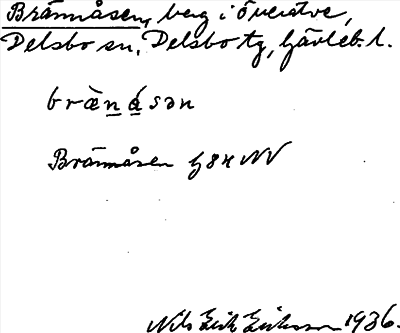 Brännåsen, berg i Överälve,
Delsbo sn, Delsbo tg, Gävleb. l.
brä̀n̲á̲sən
Brännåsen G84 NV
Nils Erik Eriksson 1936.